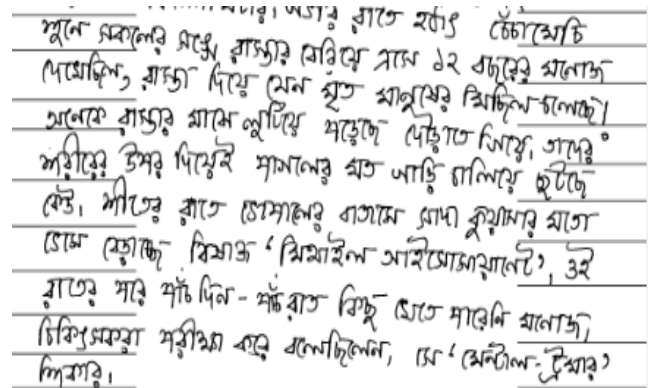 রাতে হঠাৎ চেঁচামেচি
শুনে সকলের সঙ্গে রাস্তায় বেরিয়ে এসে ১২ বছরের মনোজ
দেখেছিল, রাস্তা দিয়ে যেন মৃত মানুষের মিছিল চলেছে।
অনেকে রাস্তার মাঝে লুটিয়ে পড়েছে দৌড়াতে গিয়ে, তাদের
শরীরের উপর দিয়েই পাগলের মত গাড়ি চালিয়ে ছুটছে
কেউ। শীতের রাতে ভোপালের বাতাসে সাদা কুয়াশার মতো
ভেসে বেড়াচ্ছে বিষাক্ত ‘মিথাইল আইসোসায়ানেট’, ওই
রাতের পরে পাঁচ দিন - পাঁচ রাত কিছু খেতে পারেনি মনোজ,
চিকিৎসকরা পরীক্ষা করে বলেছিলেন, সে ‘মেন্টাল-ট্রমার’
শিকার।